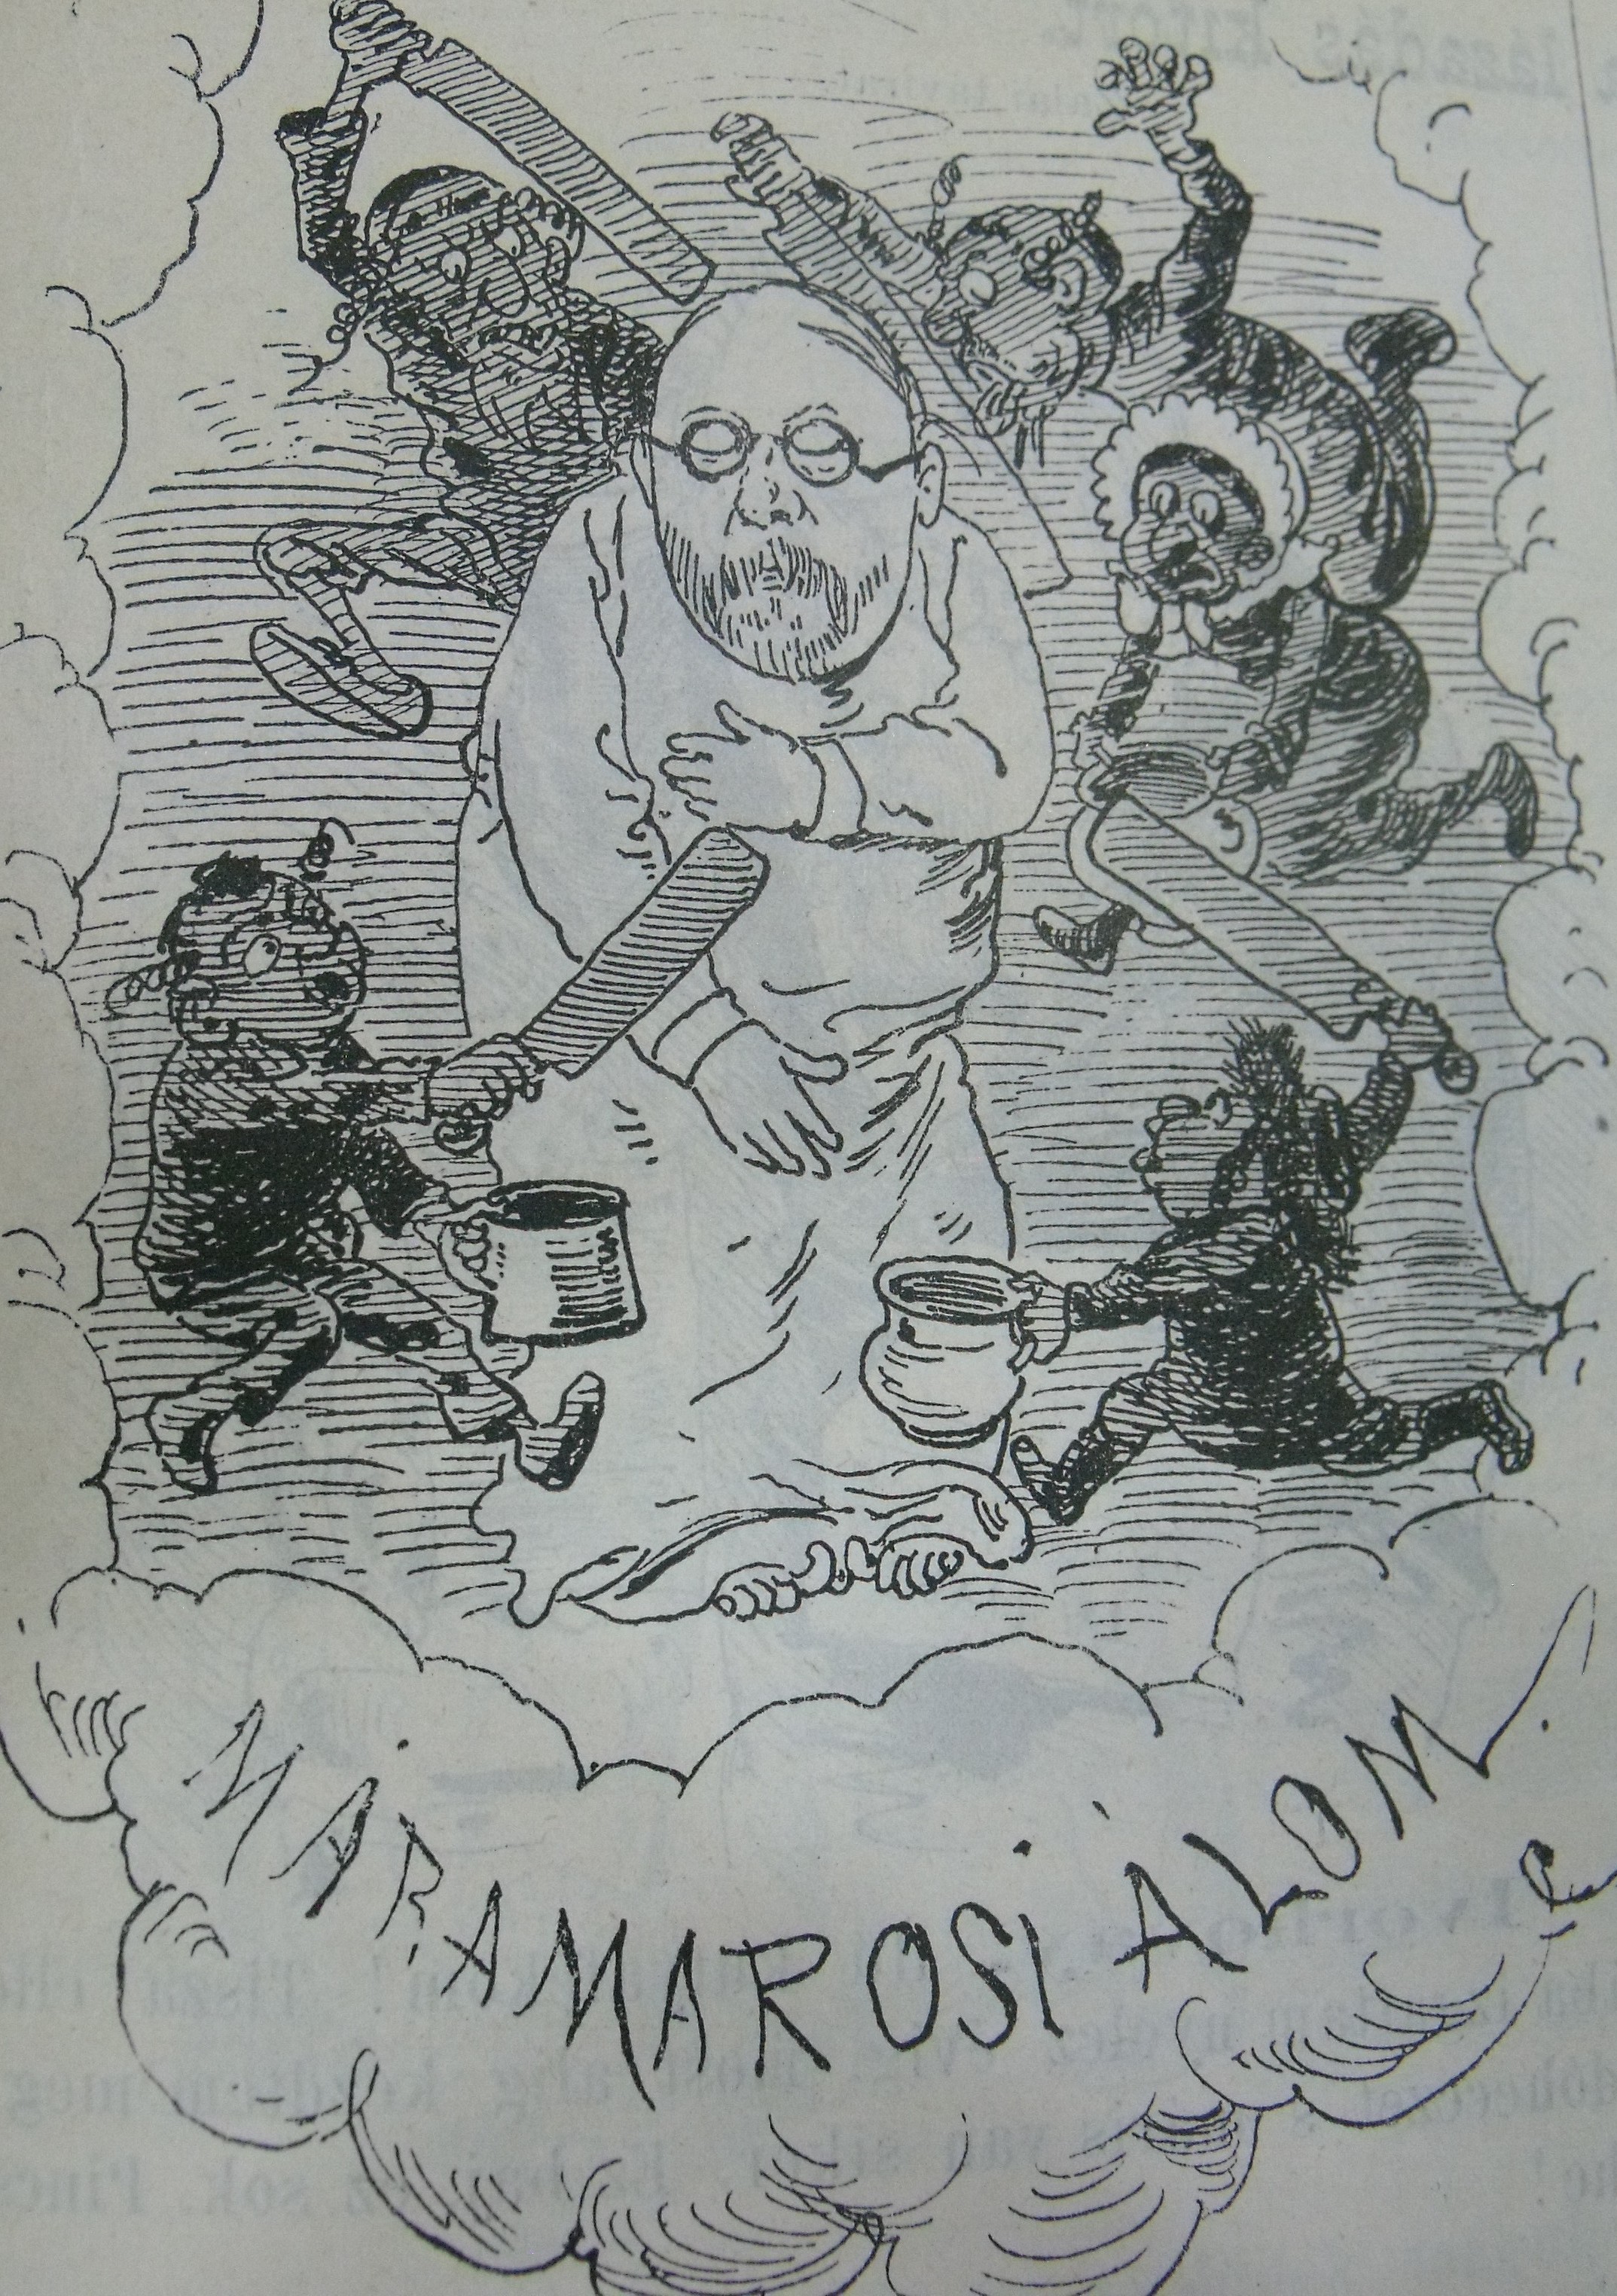 MÁRAMAROSI ÁLOM.